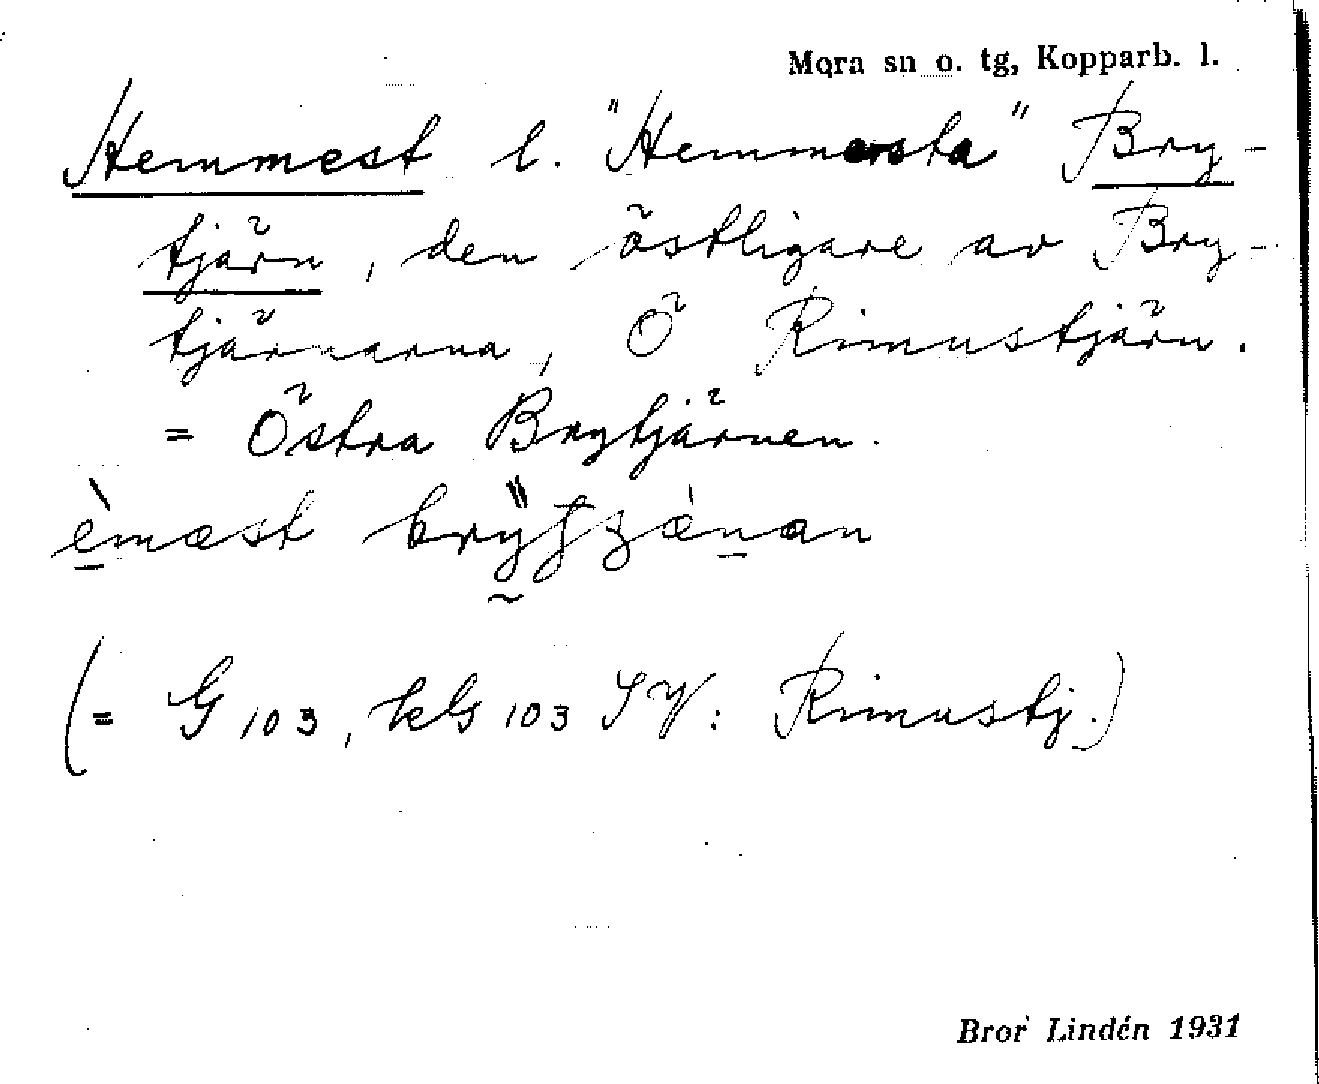 Mora sn o. tg, Kopparb. l.
Hemmest l. "Hemmersta" Bry-
tjärn, den östligare av Bry-
tjärnarna, Ö Rimustjärn.
= Östra Brytjärnen.
èmæst
(= G 103, kG 103 SV: Rimustj.)
Bror Lindén 1931